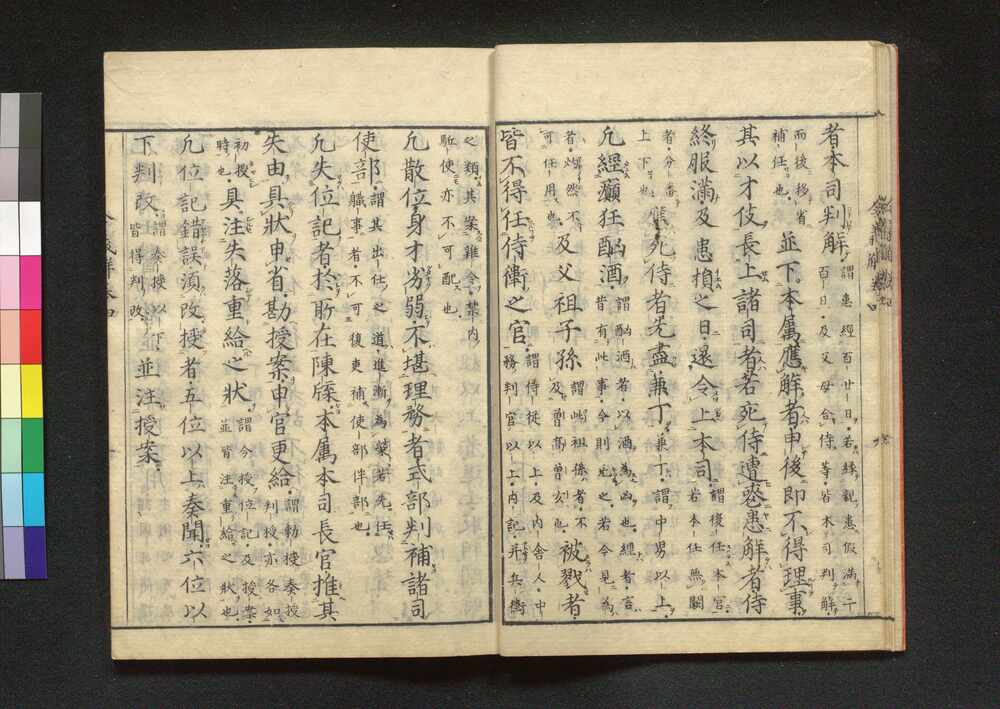 者本司判解謂患經百廿日若緣親患假滿二百日及父母合侍等皆本司判解
而後移省補任也並下本属應解者申後即不得理事
其以才伎長上諸司者若死侍遭喪患解者侍
終服滿及患損之日還令上本司謂復任本官若本任無闕
者分番上下也應死侍者先盡兼丁兼丁謂中男以上
凡經癲狂酗酒謂酗酒若以酒為凶也經者言昔有此事今則免之若今見為
者灼然不可任用也及父祖子孫謂此祖條者不及曾高曾玄也被戮者
皆不得任侍衛之官謂侍從以上及内舍人中務判官以上内記并兵衛
之類其案雖令禁内駈使亦不可配也
凡散位身才劣弱不堪理務者式部判補諸司
使部謂其出仕之道進漸為榮若先任職事者不可復更補使部伴部也
凡失位記者於所在陳牒本属本司長官推其
失由具狀申省勘授案申官更給謂勅授奏授判授亦各如
初授時也具注失落重給之狀謂今授位記及授案並皆注重給之狀也
凡位記錯誤須改授者五位以上奏聞六位以
下判改謂奏授以下皆得判改並注授案